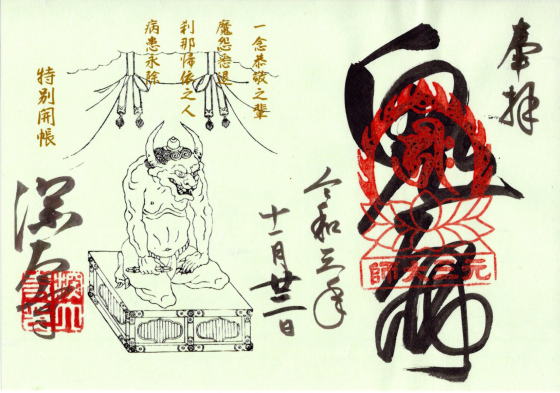 奉拝
鬼大師
元三大師
令和三年
十一月廿二日
一念恭敬之輩
魔怨治退
刹那帰依之人
病患永除
特別開帳
深大寺